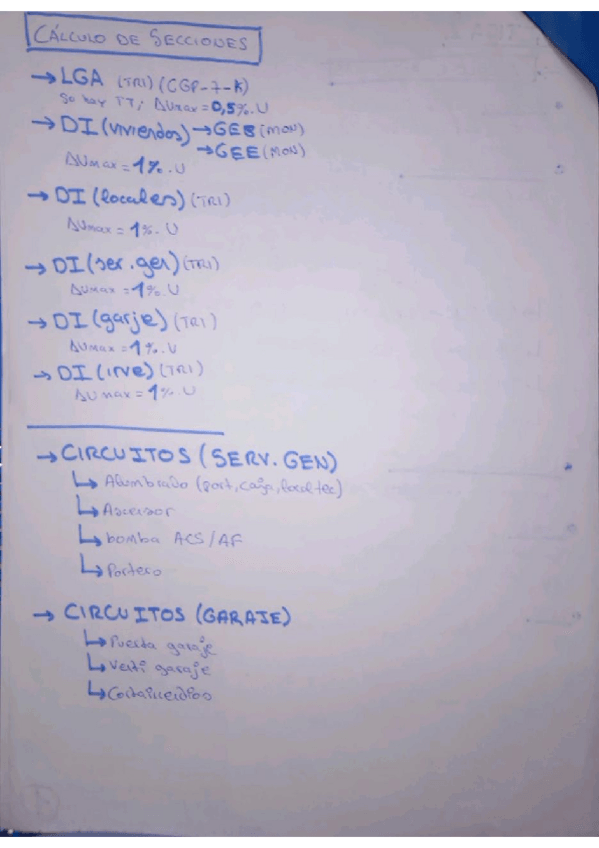 CÁLCULO DE SECCIONES
→ LGA (TRI) (CGP-7-K)
So hay TT; ΔUmax = 0,5%. U
→ DI (viviendas) → GEB (MON)
→ GEE (MON)
ΔUmax = 1%. U
→ DI (locales) (TRI)
ΔUmax = 1%. U
→ DI (ser. gen) (TRI)
ΔUmax = 1%. U
→ DI (garje) (TRI)
ΔUmax = 1%. U
→ DI (irve) (TRI)
ΔU max = 1%. U
→ CIRCUITOS (SERV. GEN)
↳ Alumbrado (port, caja, local tec)
↳ Ascensor
↳ bomba ACS/AF
↳ Portero
→ CIRCUITOS (GARAJE)
↳ Puerta garaje
↳ Venti garaje
↳ Contraincendios